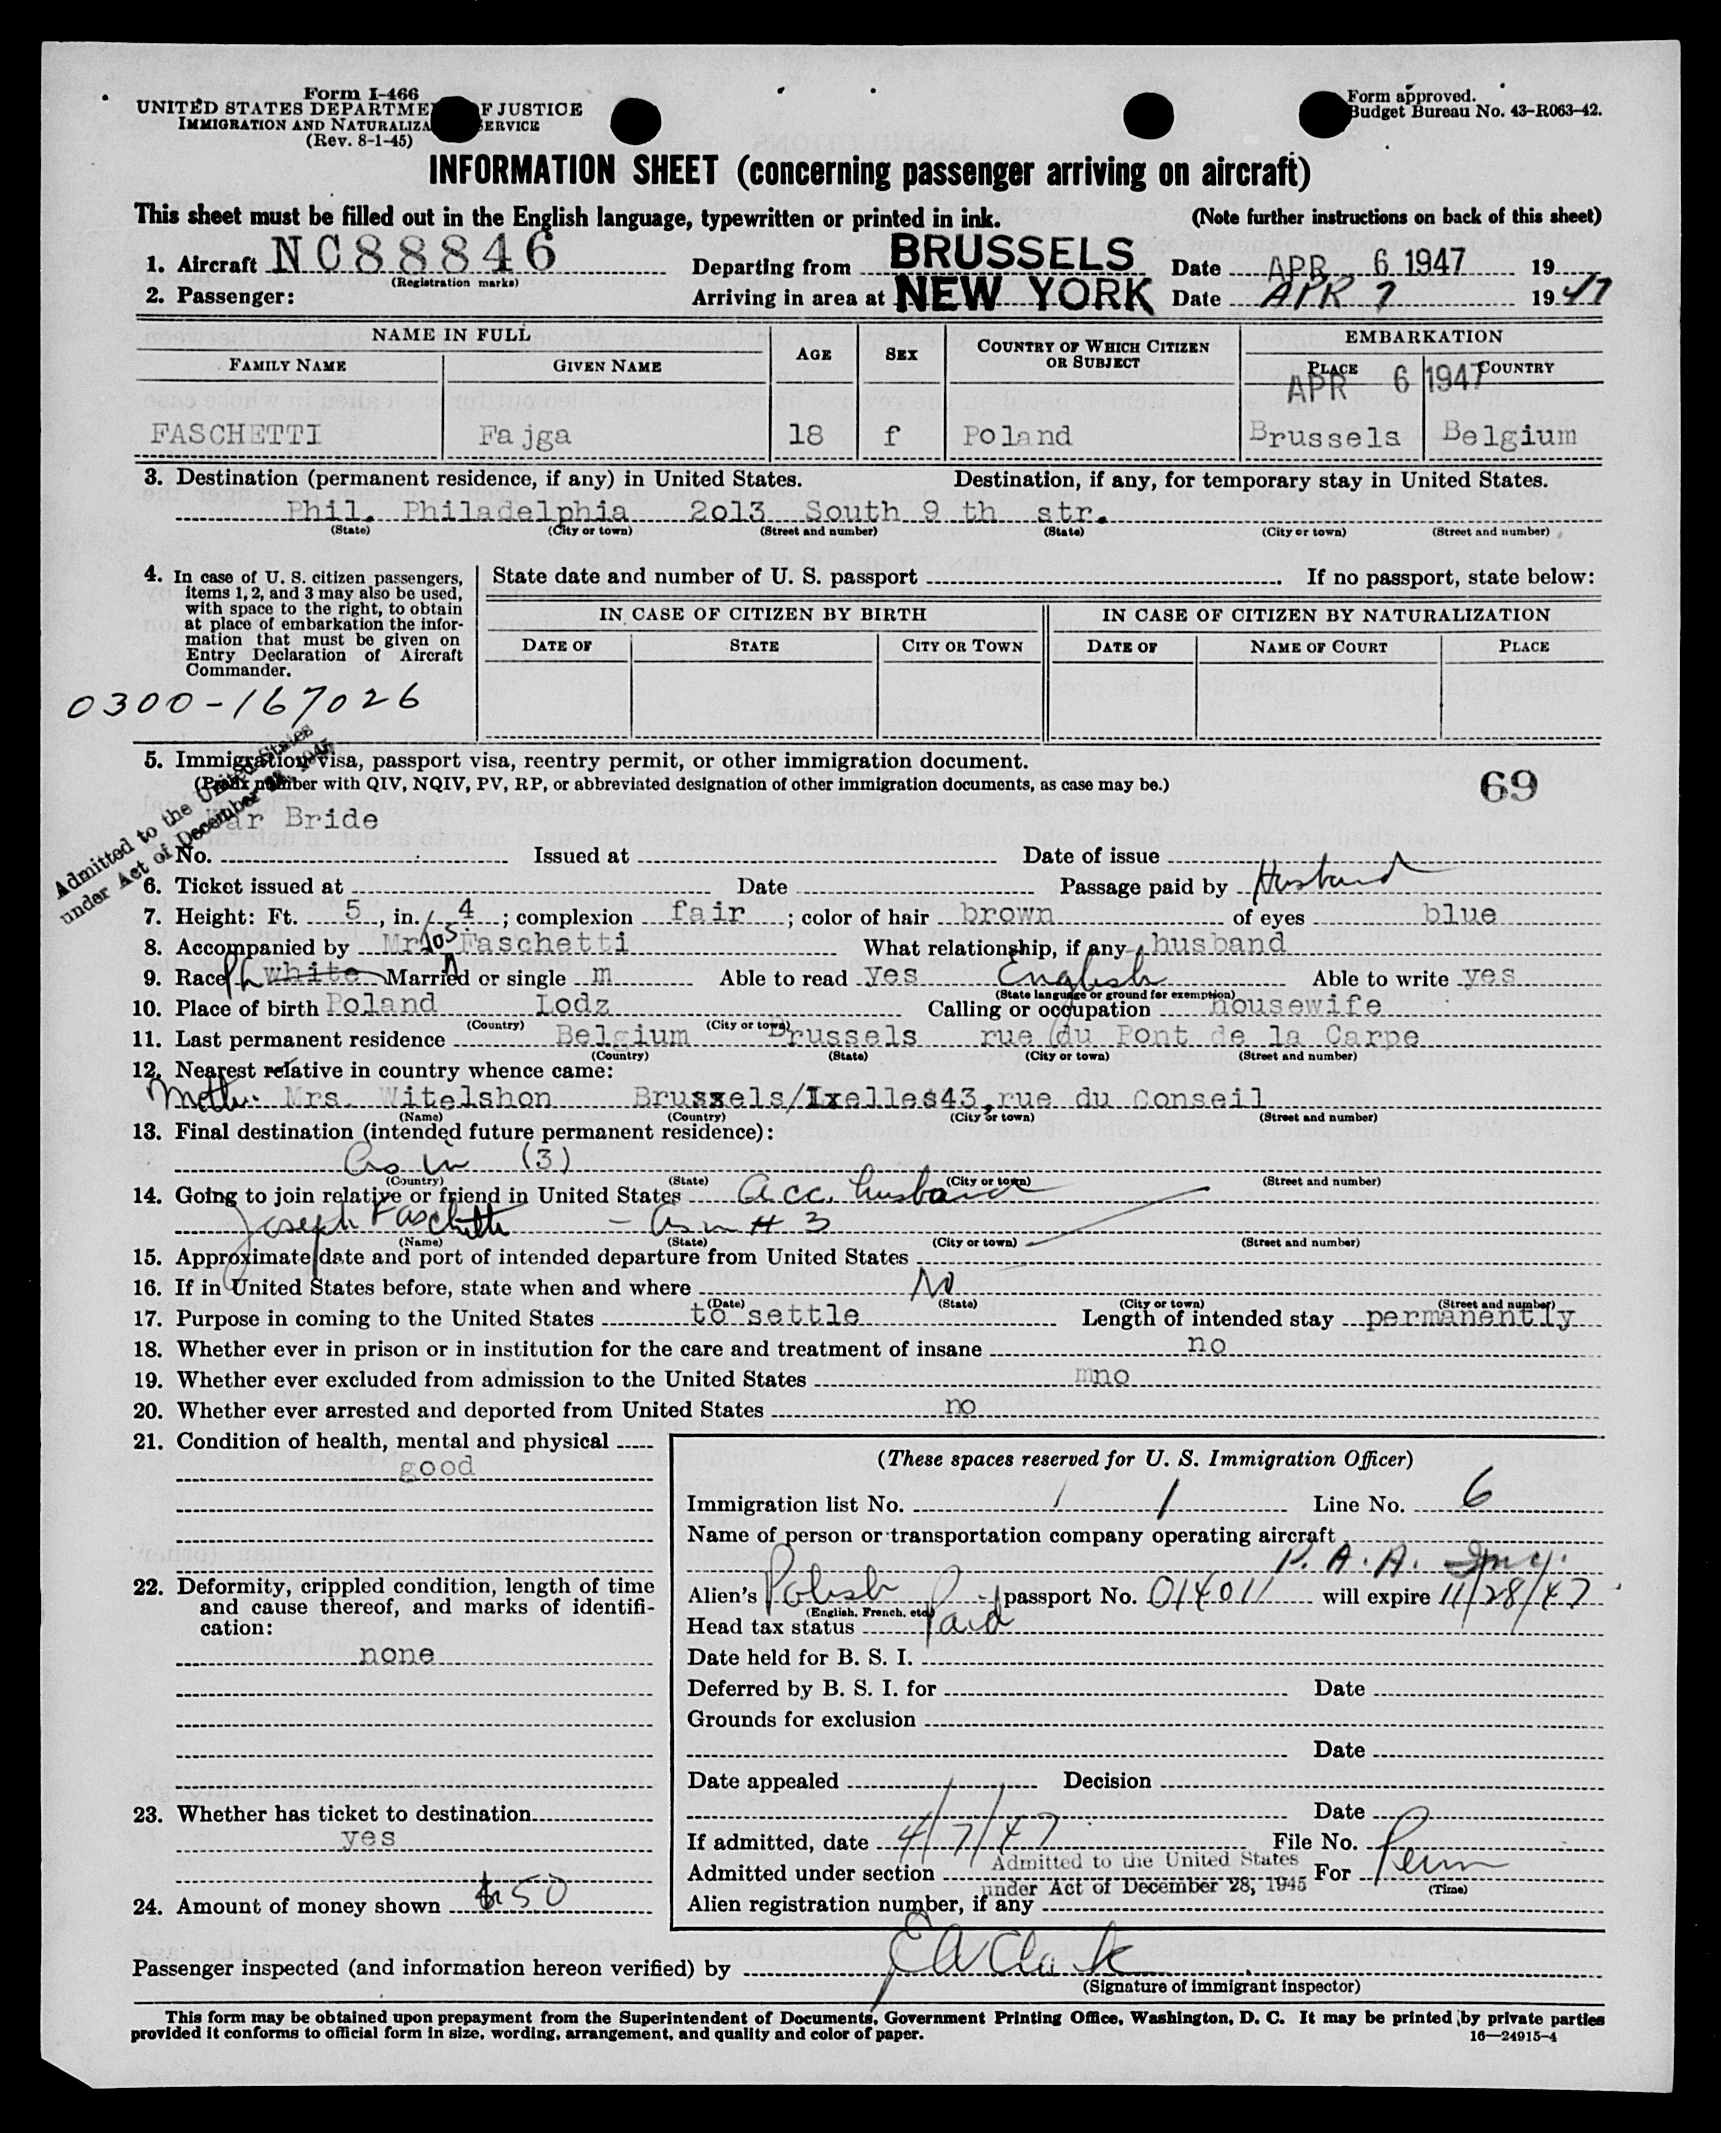 Form I-466
UNITED STATES DEPARTME F JUSTICE
IMMIGRATION AND NATURALIZA SERVICE
(Rev. 8-1-45)
Form approved.
Budget Bureau No. 43-R063-42.
INFORMATION SHEET (concerning passenger arriving on aircraft)
This sheet must be filled out in the English language, typewritten or printed in ink. (Note further instructions on back of this sheet)
1. Aircraft NC88846 Departing from BRUSSELS Date APR 6 1947 19
(Registration marks)
2. Passenger: Arriving in area at NEW YORK Date APR 7 1947
NAME IN FULL AGE SEX COUNTRY OF WHICH CITIZEN OR SUBJECT EMBARKATION
FAMILY NAME GIVEN NAME PLACE COUNTRY
APR 6 1947
FASCHETTI Fajga 18 f Poland Brussels Belgium
3. Destination (permanent residence, if any) in United States. Destination, if any, for temporary stay in United States.
Phil. Philadelphia 2o13 South 9 th str.
(State) (City or town) (Street and number) (State) (City or town) (Street and number)
4. In case of U. S. citizen passengers,
items 1, 2, and 3 may also be used,
with space to the right, to obtain
at place of embarkation the infor-
mation that must be given on
Entry Declaration of Aircraft
Commander.
State date and number of U. S. passport If no passport, state below:
IN CASE OF CITIZEN BY BIRTH IN CASE OF CITIZEN BY NATURALIZATION
DATE OF STATE CITY OR TOWN DATE OF NAME OF COURT PLACE
0300-167026
Admitted to the United States
under Act of December 28, 1945
5. Immigration visa, passport visa, reentry permit, or other immigration document.
(Prefix number with QIV, NQIV, PV, RP, or abbreviated designation of other immigration documents, as case may be.) 69
War Bride
No. Issued at Date of issue
6. Ticket issued at Date Passage paid by Husband
7. Height: Ft. 5, in. 4; complexion fair; color of hair brown of eyes blue
8. Accompanied by Mr Jos. Faschetti What relationship, if any husband
9. Race white Married or single m Able to read yes English Able to write yes
(State language or ground for exemption)
10. Place of birth Poland Lodz Calling or occupation housewife
(Country) (City or town)
11. Last permanent residence Belgium Brussels rue du Pont de la Carpe
(Country) (State) (City or town) (Street and number)
12. Nearest relative in country whence came:
Mother Mrs. Witelshon Brussels/Ixelles43,rue du Conseil
(Name) (Country) (City or town) (Street and number)
13. Final destination (intended future permanent residence):
As in (3)
(Country) (State) (City or town) (Street and number)
14. Going to join relative or friend in United States acc. husband
Joseph Faschetti - As in # 3
(Name) (State) (City or town) (Street and number)
15. Approximate date and port of intended departure from United States
16. If in United States before, state when and where No
(Date) (State) (City or town) (Street and number)
17. Purpose in coming to the United States to settle Length of intended stay permanently
18. Whether ever in prison or in institution for the care and treatment of insane no
19. Whether ever excluded from admission to the United States mno
20. Whether ever arrested and deported from United States no
21. Condition of health, mental and physical
good
22. Deformity, crippled condition, length of time
and cause thereof, and marks of identifi-
cation:
none
23. Whether has ticket to destination
yes
24. Amount of money shown $50
(These spaces reserved for U. S. Immigration Officer)
Immigration list No. 1 Line No. 6
Name of person or transportation company operating aircraft
P. A. A.
Alien's Polish passport No. 014011 will expire 11/28/47
(English, French, etc.)
Head tax status Paid
Date held for B. S. I.
Deferred by B. S. I. for Date
Grounds for exclusion
Date
Date appealed Decision
Date
If admitted, date 4/7/47 File No.
Admitted under section Admitted to the United States For Perm
under Act of December 28, 1945 (Time)
Alien registration number, if any
Passenger inspected (and information hereon verified) by E A Clark
(Signature of immigrant inspector)
This form may be obtained upon prepayment from the Superintendent of Documents, Government Printing Office, Washington, D. C. It may be printed by private parties
provided it conforms to official form in size, wording, arrangement, and quality and color of paper. 16—24915-4